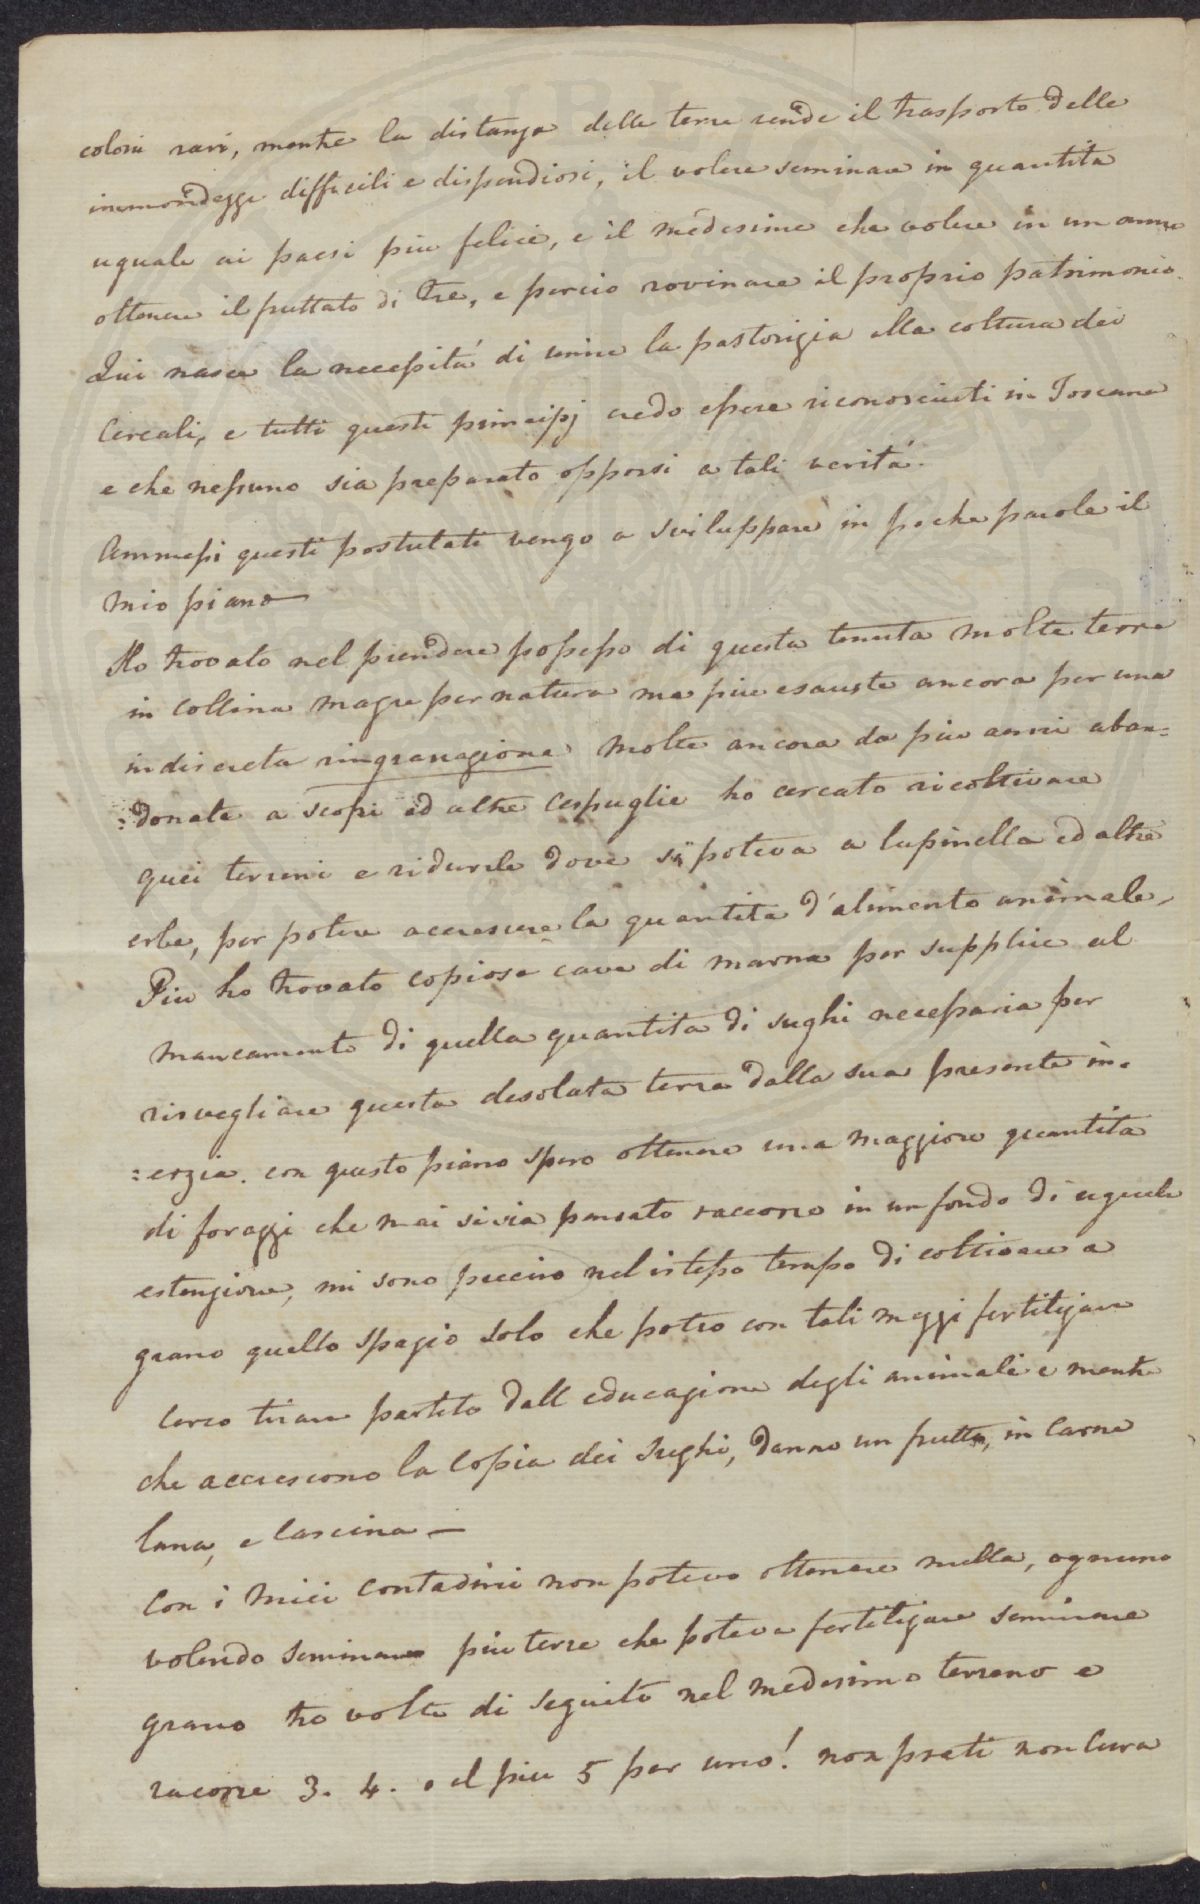 coloni rari, mentre la distanza delle terre rende il trasporto delle
immondezze difficili e dispendiosi, il volere seminare in quantita
uguale ai paesi piu felici, e il medesimo che volere in un anno
ottenere il fruttato di tre, e percio rovinare il proprio patrimonio.
Qui nasce la necessitá di unire la pastorizia alla coltura dei
Cereali, e tutti questi principj credo essere riconosciuti in Toscana
e che nessuno sia preparato opporsi a tali veritá.
Ammessi questi postulati vengo a sviluppare in poche parole il
mio piano —
Ho trovato nel prendere possesso di questa tenuta molte terre
in collina magre per natura ma piu esauste ancora per una
indiscreta ringranazione molte ancora da piu anni aban=
=donate a scopi ed altre cespuglie ho cercato ricoltivare
quei terreni e ridurle dove si poteva a lupinella ed altre
erbe, per potere accrescere la quantita d'alimento animale,
Piu ho trovato copiose cave di marna per supplire al
mancamento di quella quantita di sughi necessaria per
risvegliare questa desolata terra dalla sua presente in=
=erzia. con questo piano spero ottenere una maggiore quantita
di foraggi che mai si sia pensato raccorre in un fondo di uguale
estenzione, mi sono nel istesso tempo di coltivare a
grano quello spazio solo che potro con tali mezzi fertilizare
Cerco tirare partito dall educazione degli animali e mentre
che accrescono la copia dei sughi, danno un frutto, in carne
lana, e cascina —
Con i miei contadini non potevo ottenere nulla, ognuno
volendo seminare piu terre che poteva fertilizare seminare
grano tre volte di seguito nel medesimo terreno e
racorre 3. 4. o al piu 5 per uno! non prati non cura